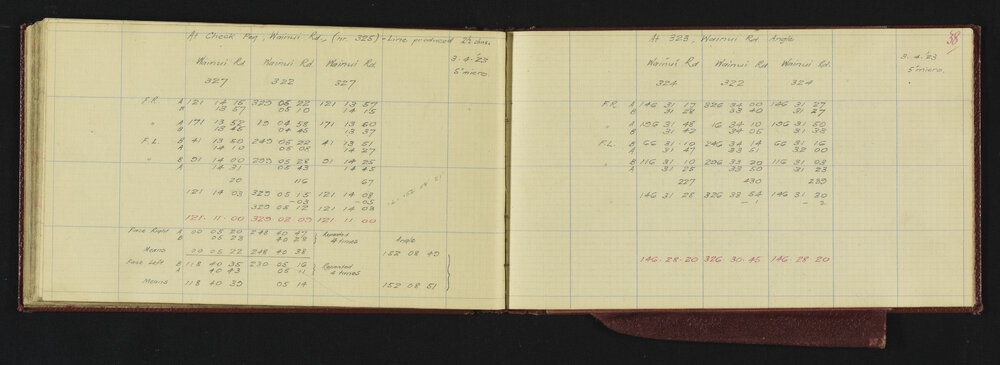 At Check Peg, Wainui Rd, (nr. 325) - Line produced
3.4.'23
5" micro.
Wainui Rd Wainui Rd Wainui Rd
327 322 327
F.R. A 121 14 15 329 05 22 121 13 57
B 13 57 05 10 14 15
" A 171 13 52 19 04 58 171 13 50
B 13 45 04 45 13 37
F.L. B 41 13 50 249 05 22 41 13 51
A 14 10 05 05 14 27
" B 91 14 00 299 05 28 91 14 25
A 14 31 05 43 14 45
20 116 67
121 14 03 329 05 15 121 14 08
-03 -05
329 05 12 121 14 03
121. 11. 00 329 02 09 121 11 00
Face Right A 00 05 20 248 40 47 Repeated 4 times Angle
B 05 23 40 29
Means 00 05 22 248 40 38 152 08 49
Face Left B 118 40 35 230 05 16 Repeated 4 times
A 40 43 05 11
Means 118 40 39 05 14 152 08 51
38
At 323, Wainui Rd. Angle
3.4.'23
5" micro.
Wainui Rd Wainui Rd. Wainui Rd.
324 322 324
F.R. A 146 31 17 326 34 00 146 31 27
B 31 28 33 40 31 27
" A 196 31 48 16 34 10 196 31 50
B 31 42 34 05 31 38
F.L. B 66 31 10 246 34 14 66 31 16
A 31 47 33 51 32 00
" B 116 31 10 296 33 20 116 31 03
A 31 25 33 50 31 23
227 430 239
146 31 28 326 33 54 146 31 30
-1 -2
146. 28. 20 326 30. 45 146. 28 20